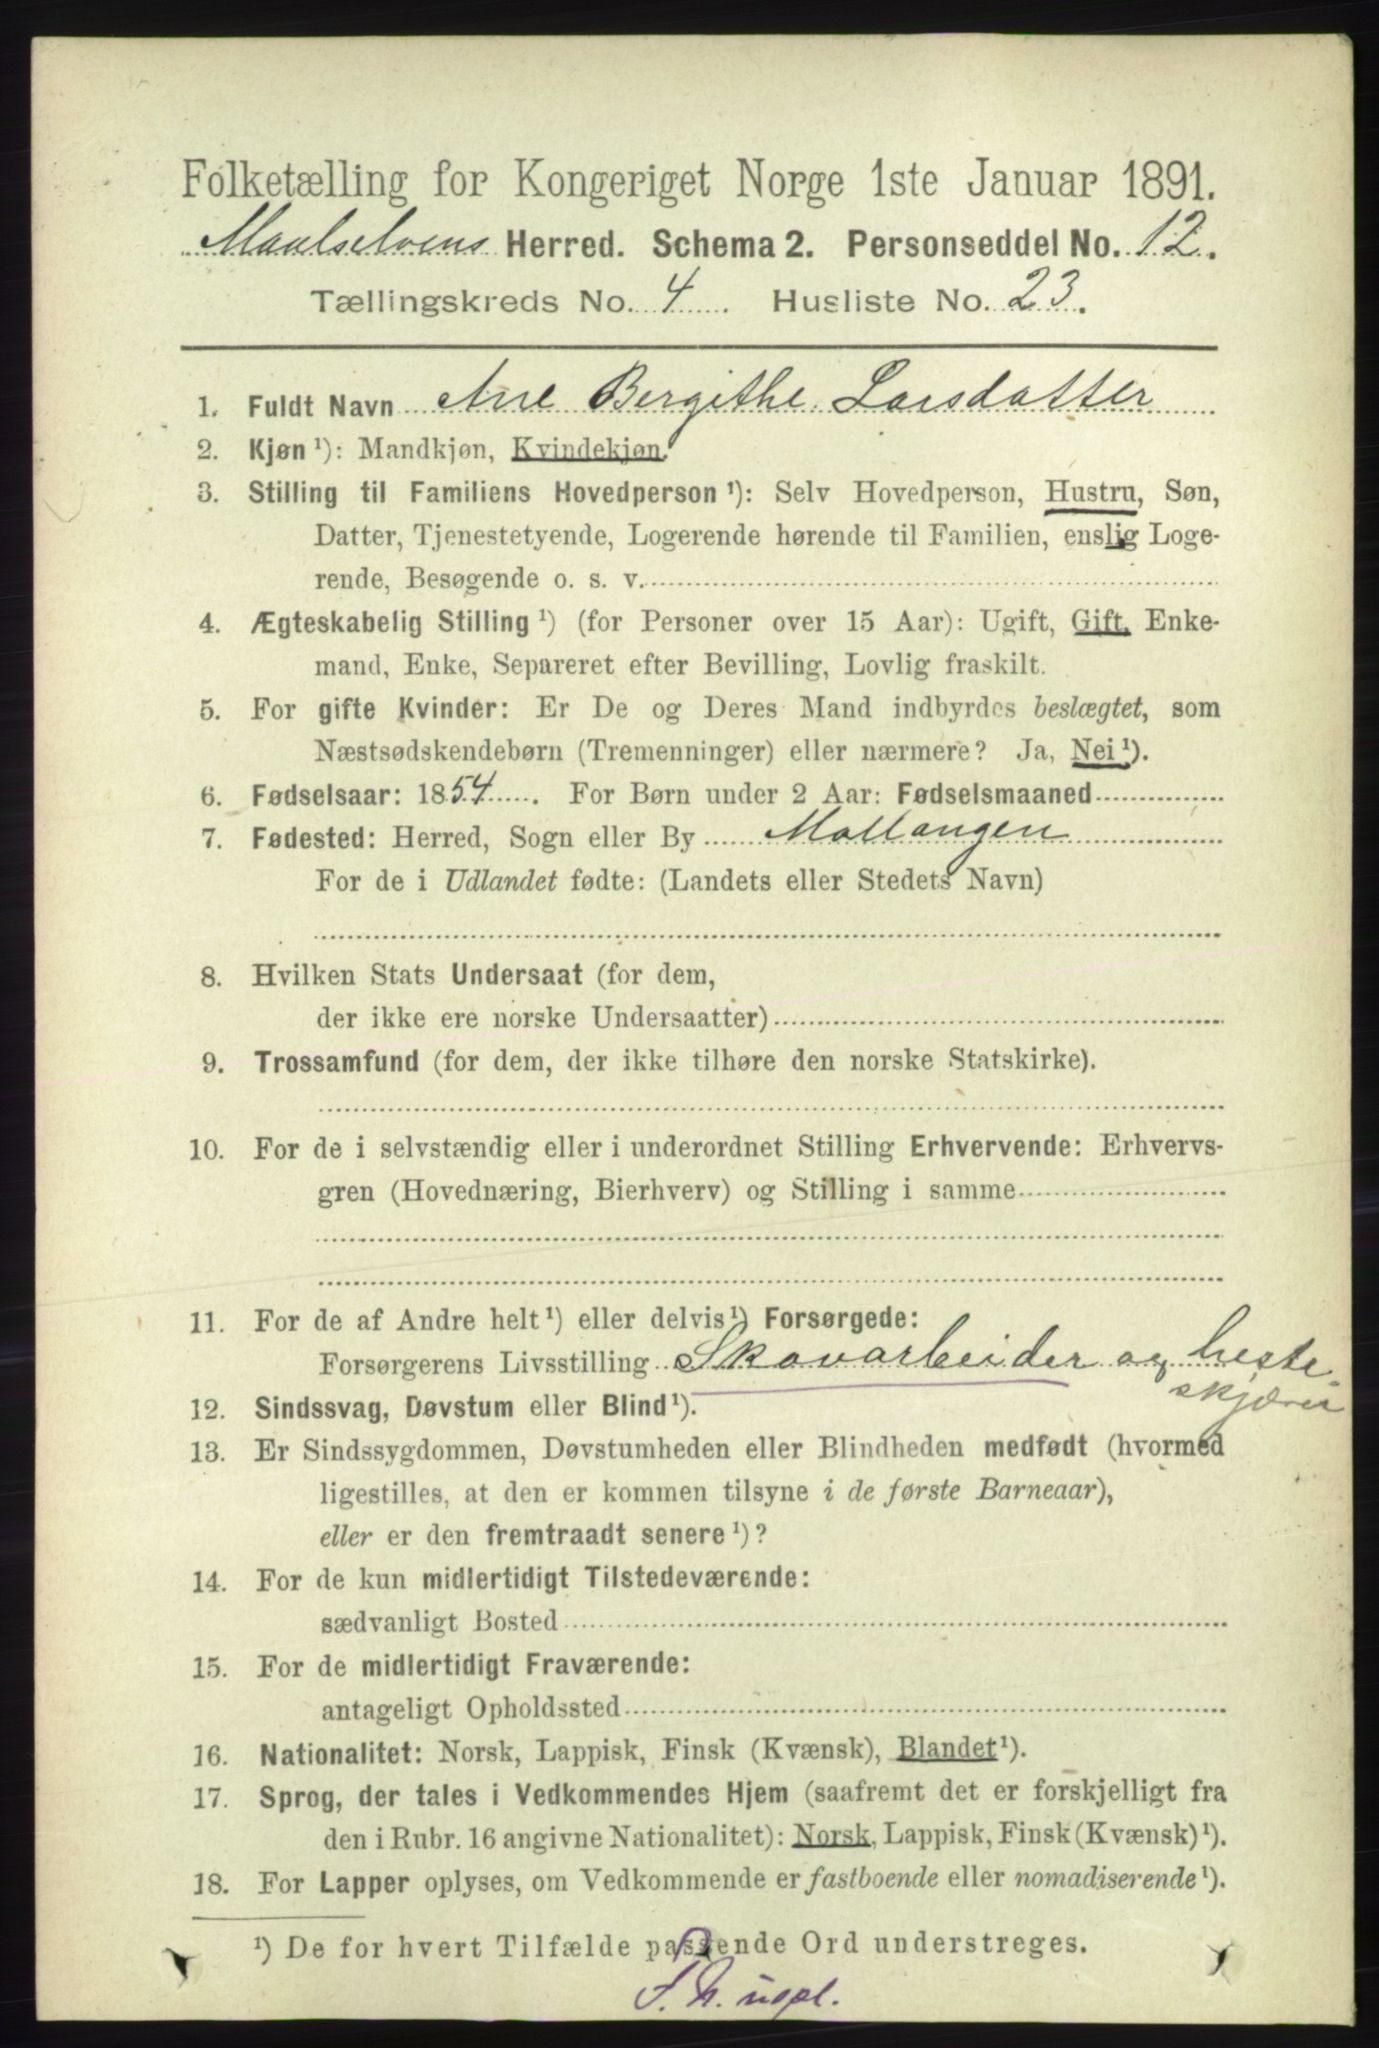 Folketælling for Kongeriget Norge 1ste Januar 1891.
Maalselvens Herred. Schema 2. Personseddel No. 12.
Tællingskreds No. 4 Husliste No. 23.
1. Fuldt Navn Ane Bergithe Larsdatter
2. Kjøn ¹): Mandkjøn, Kvindekjøn.
3. Stilling til Familiens Hovedperson ¹): Selv Hovedperson, Hustru, Søn,
Datter, Tjenestetyende, Logerende hørende til Familien, enslig Loge-
rende, Besøgende o. s. v.
4. Ægteskabelig Stilling ¹) (for Personer over 15 Aar): Ugift, Gift, Enke-
mand, Enke, Separeret efter Bevilling, Lovlig fraskilt.
5. For gifte Kvinder: Er De og Deres Mand indbyrdes beslægtet, som
Næstsødskendebørn (Tremenninger) eller nærmere? Ja, Nei ¹).
6. Fødselsaar: 1854. For Børn under 2 Aar: Fødselsmaaned
7. Fødested: Herred, Sogn eller By Mallangen
For de i Udlandet fødte: (Landets eller Stedets Navn)
8. Hvilken Stats Undersaat (for dem,
der ikke ere norske Undersaatter)
9. Trossamfund (for dem, der ikke tilhøre den norske Statskirke).
10. For de i selvstændig eller i underordnet Stilling Erhvervende: Erhvervs-
gren (Hovednæring, Bierhverv) og Stilling i samme
11. For de af Andre helt ¹) eller delvis ¹) Forsørgede:
Forsørgerens Livsstilling Skovarbeider og heste-
skjærer
12. Sindssvag, Døvstum eller Blind ¹).
13. Er Sindssygdommen, Døvstumheden eller Blindheden medfødt (hvormed
ligestilles, at den er kommen tilsyne i de første Barneaar),
eller er den fremtraadt senere ¹)?
14. For de kun midlertidigt Tilstedeværende:
sædvanligt Bosted
15. For de midlertidigt Fraværende:
antageligt Opholdssted
16. Nationalitet: Norsk, Lappisk, Finsk (Kvænsk), Blandet ¹).
17. Sprog, der tales i Vedkommendes Hjem (saafremt det er forskjelligt fra
den i Rubr. 16 angivne Nationalitet): Norsk, Lappisk, Finsk (Kvænsk) ¹).
18. For Lapper oplyses, om Vedkommende er fastboende eller nomadiserende ¹).
¹) De for hvert Tilfælde passende Ord understreges.